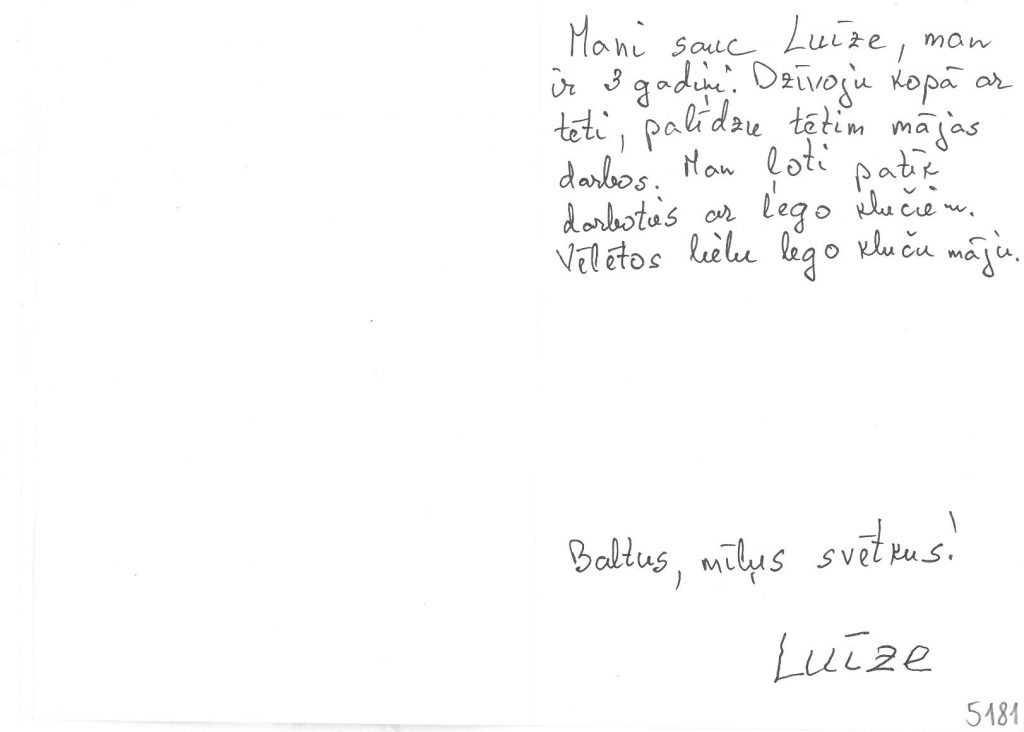 Mani sauc Luīze, man
ir 3 gadiņi. Dzīvoju kopā ar
tēti, palīdzu tētim mājas
darbos. Man ļoti patīk
darboties ar lego klučiem.
Vēlētos lielu lego kluču māju.
Baltus, mīļus svētkus!
Luīze
5181